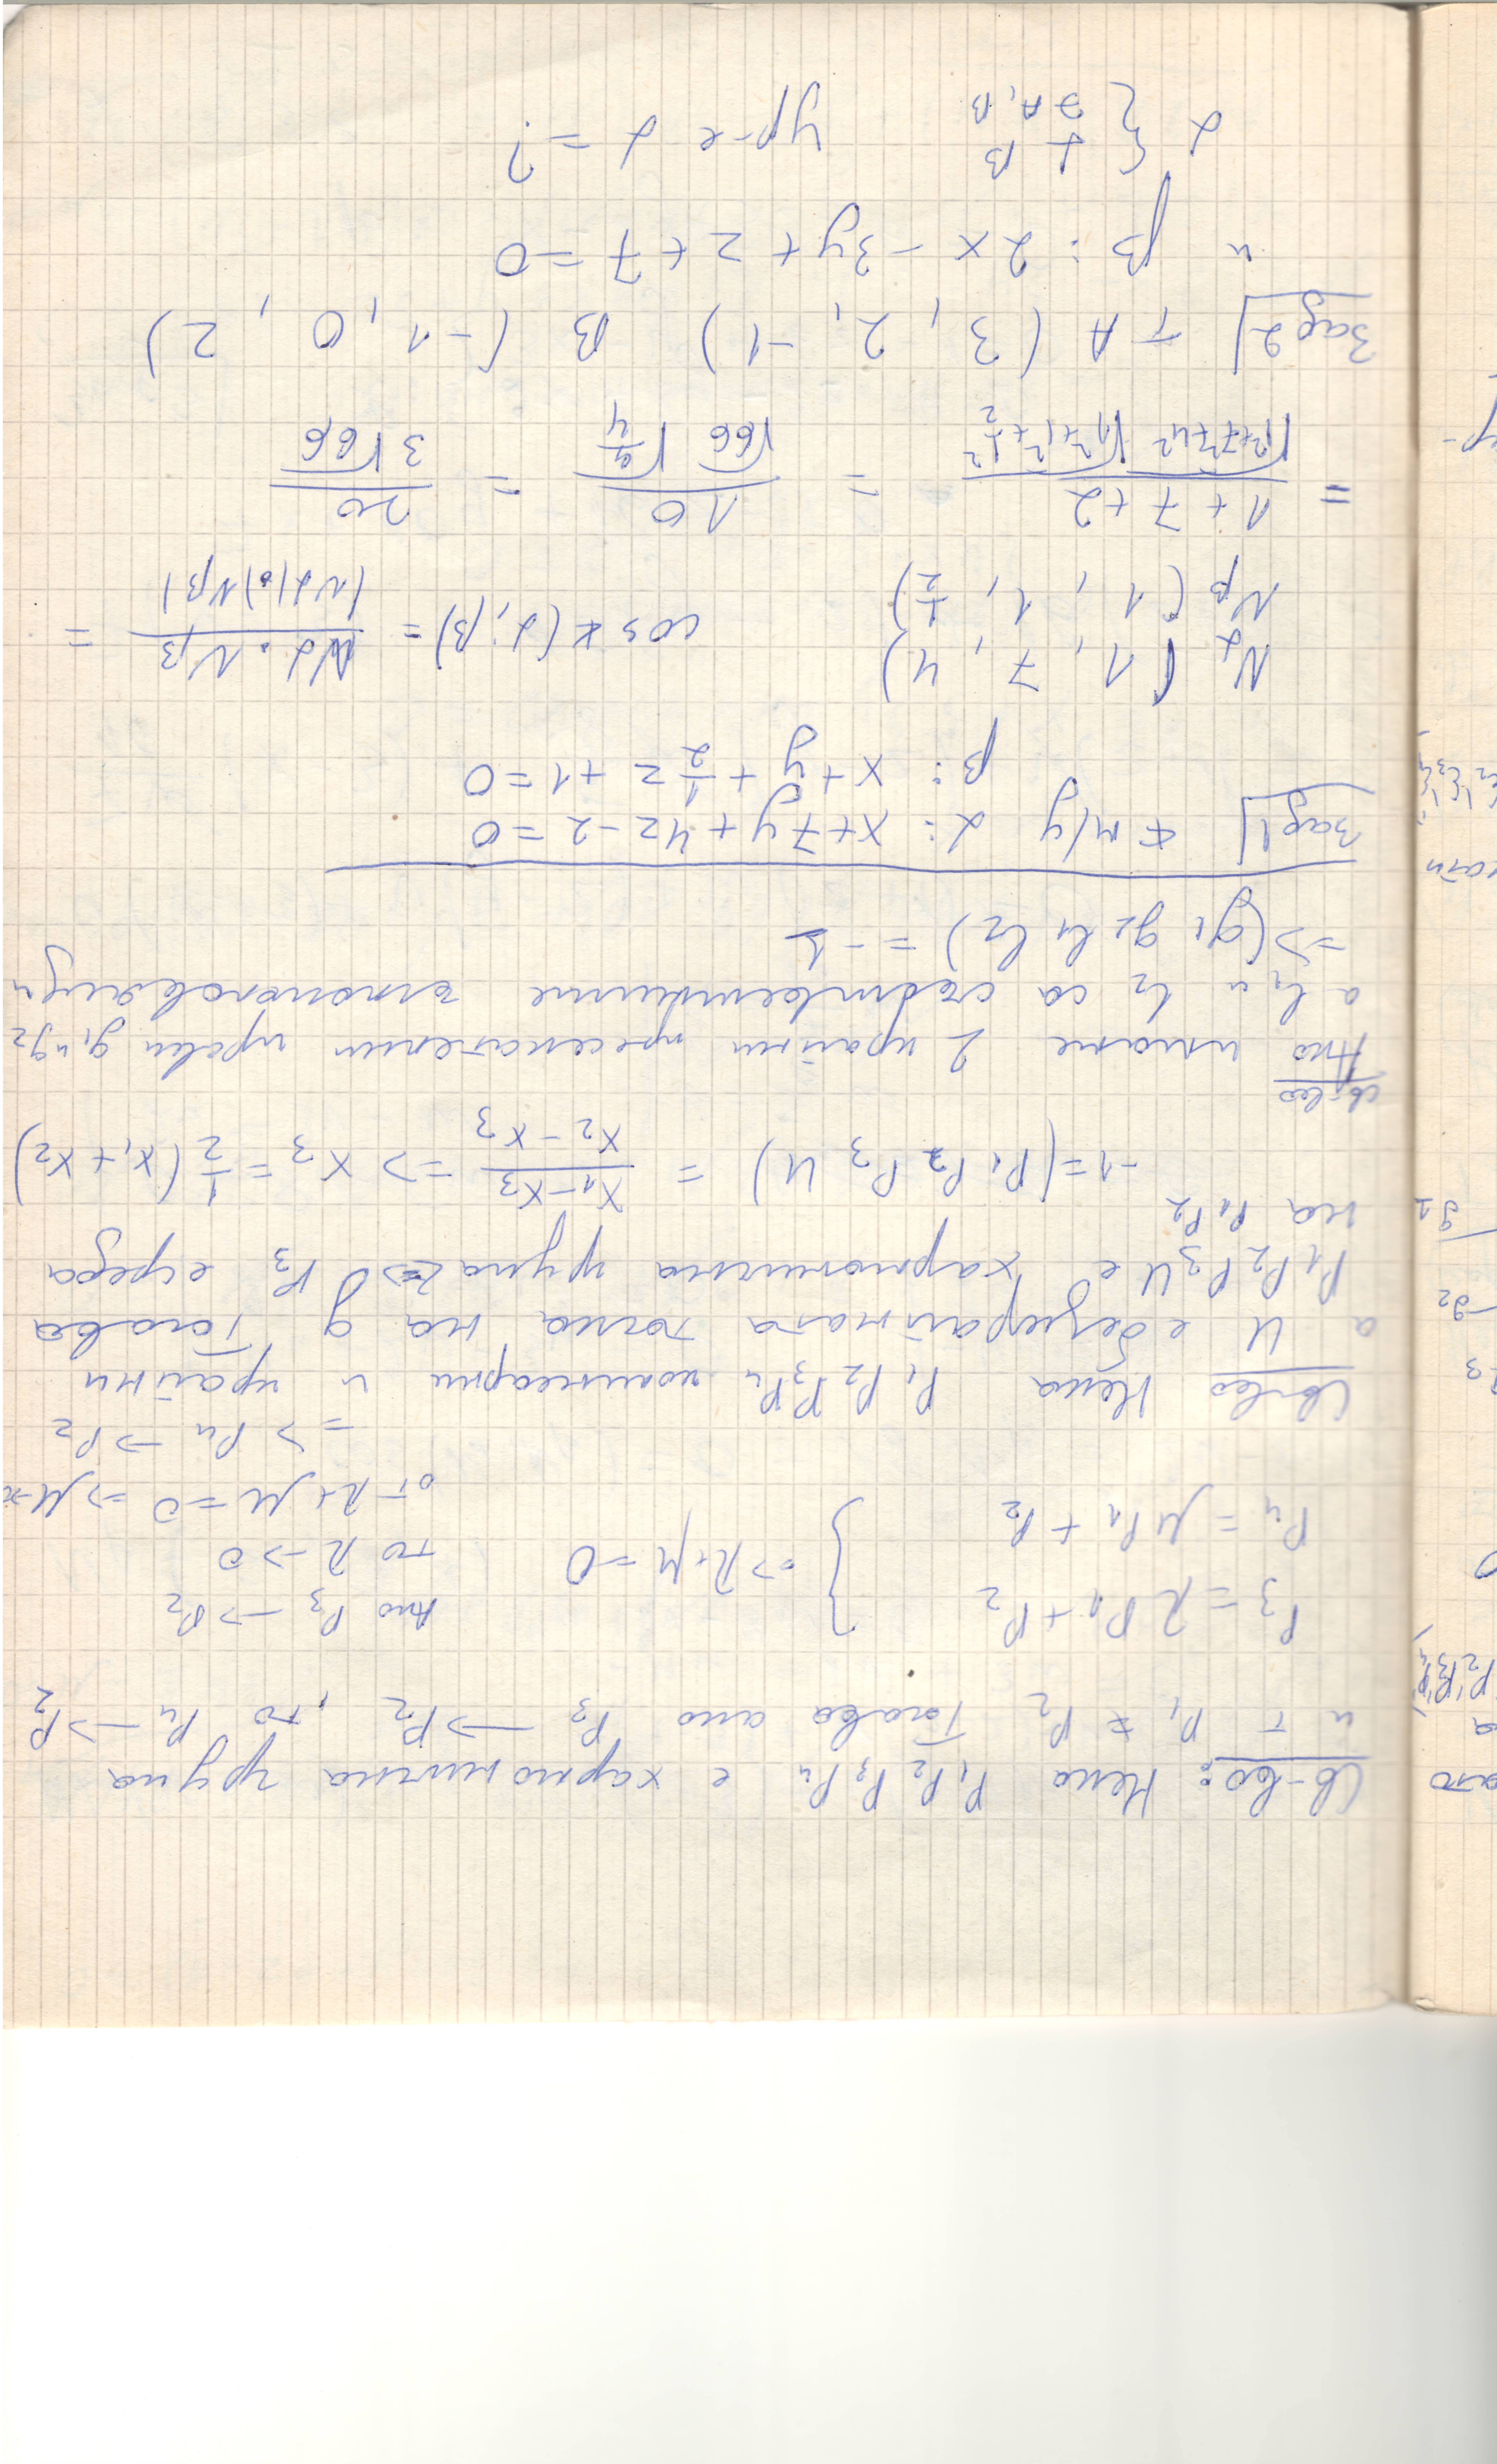 Св-во: Нека P₁ P₂ P₃ P₄ е хармонична група
и т P₁ ≠ P₂ Тогава ако P₃ → P₂, то P₄ → P₂
P₃ = λP₁ + P₂
P₄ = μP₁ + P₂
} => λ+μ = 0
Ако P₃ → P₂
то λ → 0
от λ+μ = 0 => μ→
=> P₄ → P₂
Св-во Нека P₁ P₂ P₃ P₄ колинеарни и крайни
а U е безкрайната точка на g Тогава
P₁P₂P₃U е хармонична група <=> P₃ е среда
на P₁P₂
-1 = (P₁ P₂ P₃ U) = (x₁-x₃)/(x₂-x₃) => x₃ = 1/2 (x₁+x₂)
Св-во
Ако имаме 2 крайни пресекателни прави g₁ и g₂
а l₁ и l₂ са съответните ъглополовящи
=> (g₁ g₂ l₁ l₂) = -1
Зад1 ∢ м/у α: x+7y+4z-2=0
β: x+y+1/2 z+1=0
Nα (1, 7, 4)
Nβ (1, 1, 1/2)
cos ∢(α; β) = Nα . Nβ / |Nα|.|Nβ| =
= (1+7+2)/(√1²+7²+4² √1²+1²+1/2²) = 10/(√66 √9/4) = 20/(3√66)
Зад2 т A (3, 2, -1) B (-1, 0, 2)
и β: 2x-3y+z+7=0
α { ⊥ β
∋ A, B
ур-е α = ?